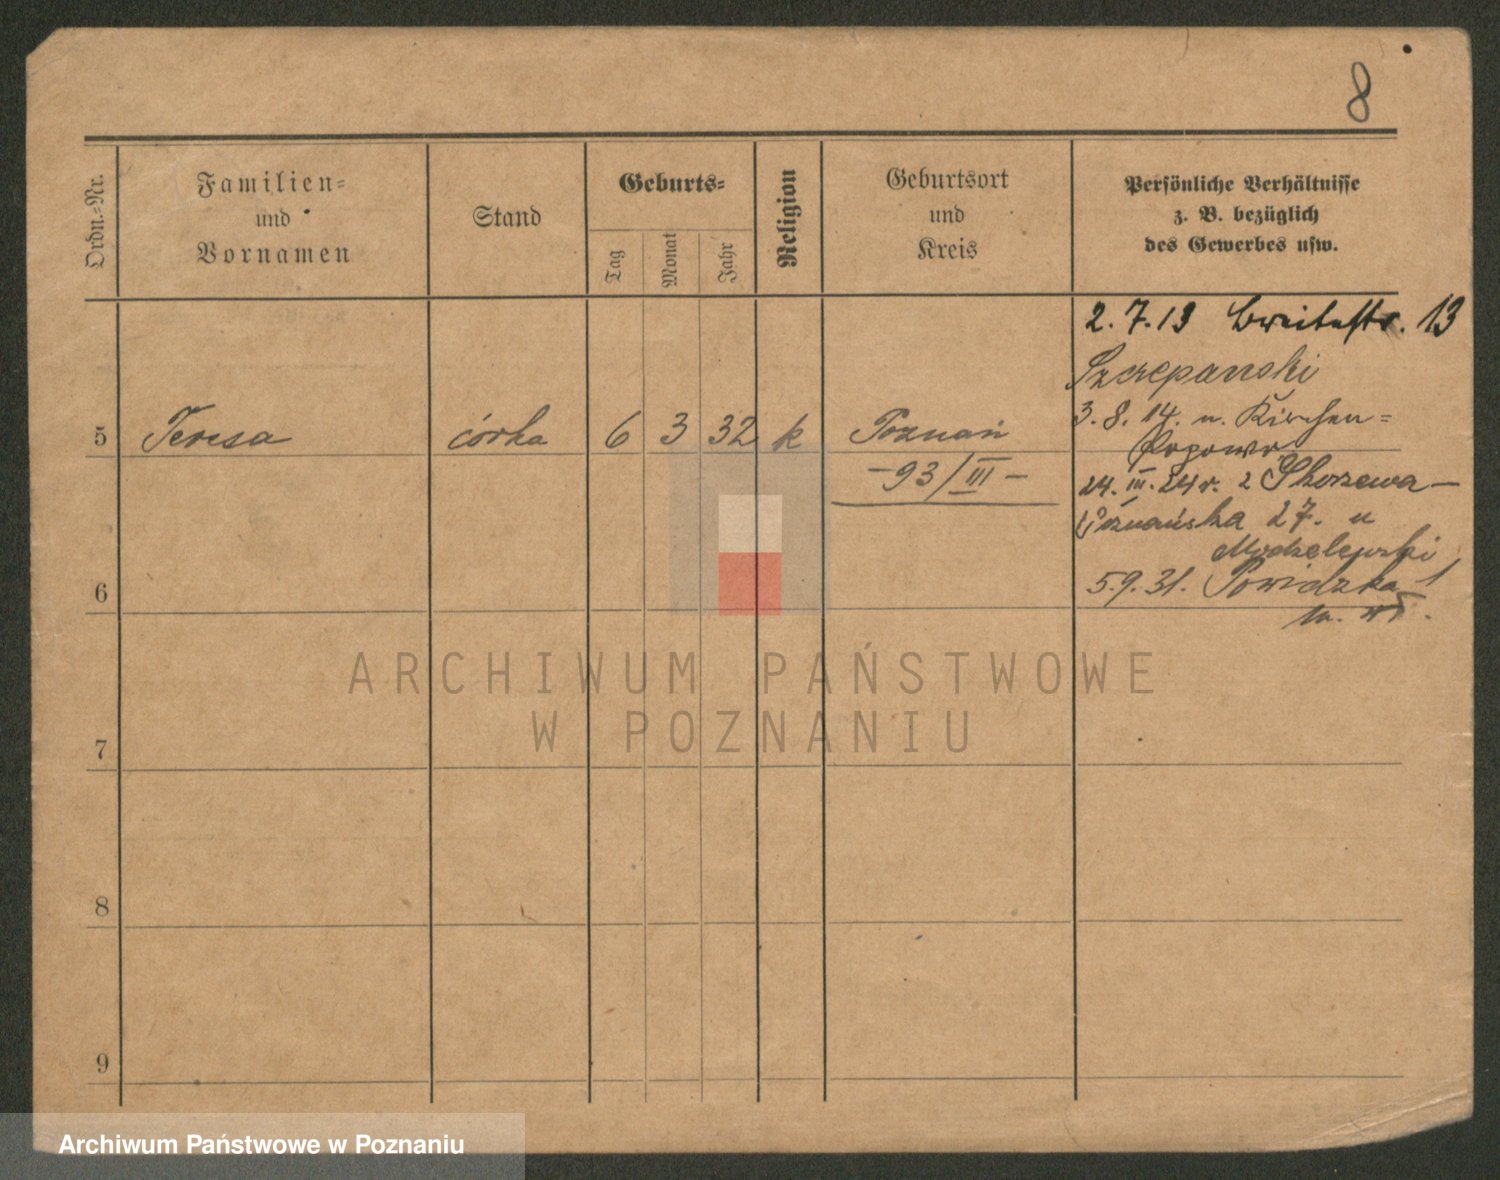 8
Ordn.-Nr.
Familien-
und
Vornamen
Stand
Geburts-
Tag
Monat
Jahr
Religion
Geburtsort
und
Kreis
Persönliche Verhältnisse
z. B. bezüglich
des Gewerbes usw.
2.7.13 Breitestr. 13
Szczepanski
3.8.14. n. Kirchen-
Popowo
5 Teresa córka 6 3 32 k Poznań
-93/III-
24. III. 24 r. z Skorzewa-
Poznańska 27. u
Modzelewski
5.9.31. Powidzka 1
6
m. wł.
ARCHIWUM PAŃSTWOWE
W POZNANIU
7
8
9
Archiwum Państwowe w Poznaniu